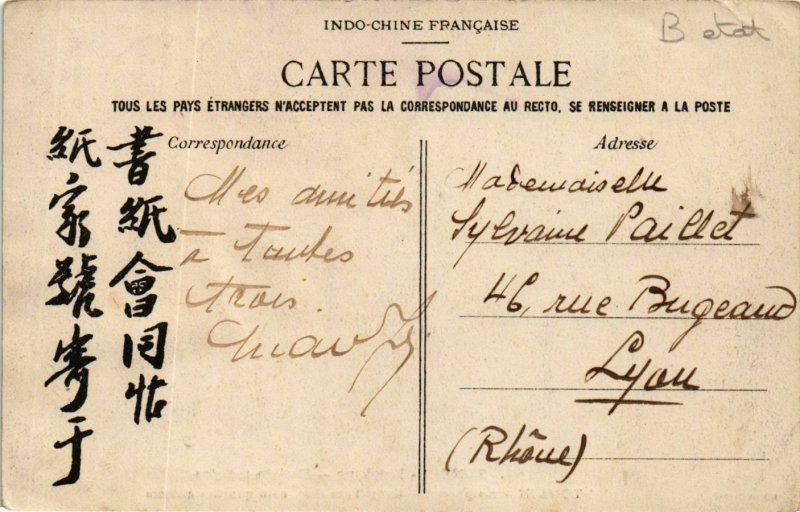 INDO-CHINE FRANÇAISE
B etat
CARTE POSTALE
TOUS LES PAYS ÉTRANGERS N'ACCEPTENT PAS LA CORRESPONDANCE AU RECTO, SE RENSEIGNER A LA POSTE
書紙會同帖
紙家號寄于
Correspondance
Mes amitiés
à toutes
trois.
Adresse
Mademoiselle
Sylvaine Paillet
46, rue Bugeaud
Lyon
(Rhône)